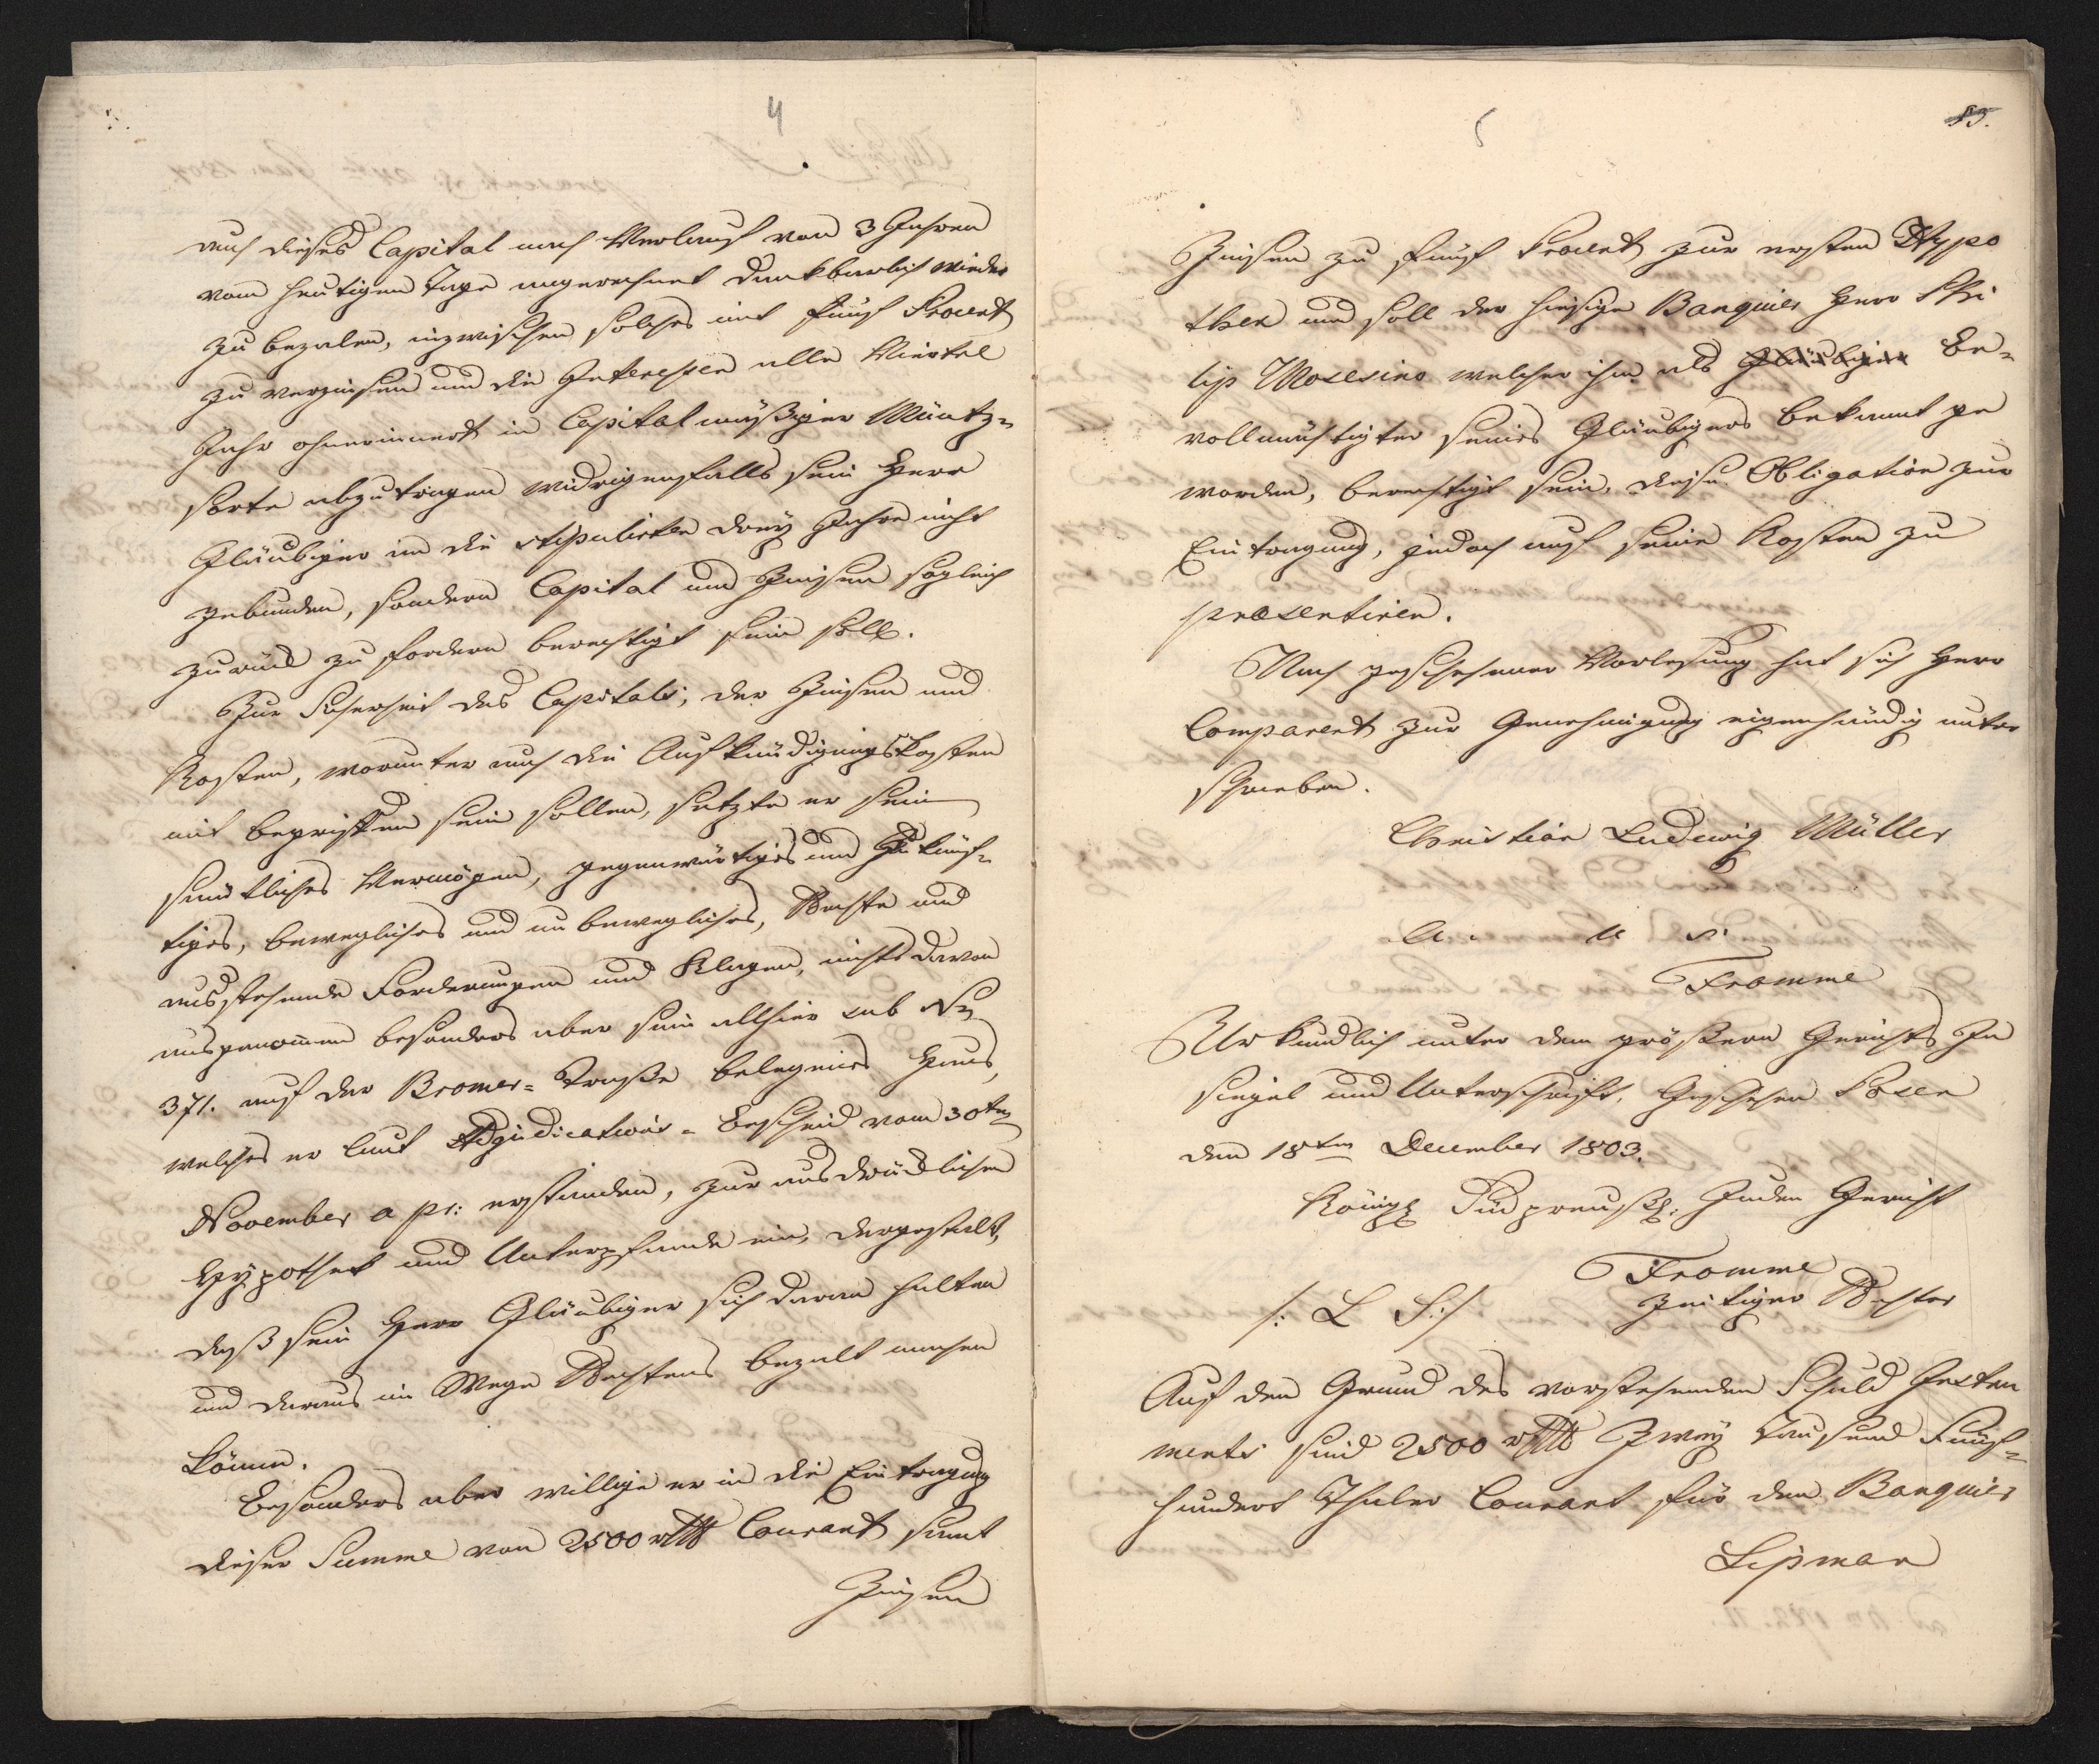 4
auch dieses Capital nach Verlauf von 3 Jahren
vom heutigen Tage angerechnet dankbarlich wieder
zu bezalen, inzwischen solches mit fünf Procent
zu verzinsen und die Interessen alle Viertel
Jahr ohnerinnert in Capitalmäßiger Müntz-
sorte abzutragen widrigenfalls sein Herr
Gläubiger an die stipulirten drey Jahre nicht
gebunden, sondern Capital und Zinsen sogleich
zurück zu fordern berechtigt sein soll.
Zur Sicherheit des Capitals, der Zinsen und
Kosten, worunter auch die Aufkündigungskosten
mit begriffen sein sollen, setzte er sein
sämtliches Vermögen, gegenwärtiges und zukünf-
tiges, bewegliches und unbewegliches, Rechte und
ausstehende Forderungen und Klagen, nichts davon
ausgenommen besonders aber sein allhier sub No
371. auf der Bromer-Straße belegenes Haus,
welches er laut Adjudications-Bescheid vom 30ten
November a pr: erstanden, zur ausdrücklichen
Hypothek und Unterpfande ein, dergestalt,
daß sein Herr Gläubiger sich daran halten
und daraus im Wege Rechtens bezalt machen
könne.
Besonders aber willige er in die Eintragung
dieser Summe von 2500 rthlr Courant samt
Zinsen
5
83.
Zinsen zu fünf Procent zur ersten Hypo
thek und soll der hiesige Banquier Herr Phi
lip Mosesino welcher ihm als Gläubiger Be-
vollmächtigter seines Gläubigers bekannt ge
worden, berechtigt sein, diese Obligation zur
Eintragung, jedoch auf seine Kosten zu
præsentiren.
Nach geschehener Vorlesung hat sich Herr
Comparent zur Genehmigung eigenhändig unter
schrieben.
Christian Ludewig Müller
a. u. s.
Fromme
Urkundlich unter dem größern Gerichts In
siegel und Unterschrift. Geschehen Posen
den 18ten December 1803.
Königl Südpreußl. Juden Gericht
Fromme
/: L S:/ zeitiger Richter
Auf den Grund des vorstehenden Schuld Instru
ments sind 2500 rthlr Zwey Tausend Fünf-
hundert Thaler Courant für den Banquier
Lipman